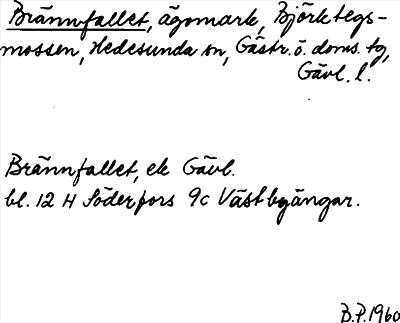 Brännfallet, ägomark, Björktegs-
mossen, Hedesunda sn, Gästr. ö. doms. tg,
Gävl. l.
Brännfallet, ek Gävl.
bl. 12 H Söderfors 9c Västbyängar.
B.P. 1960